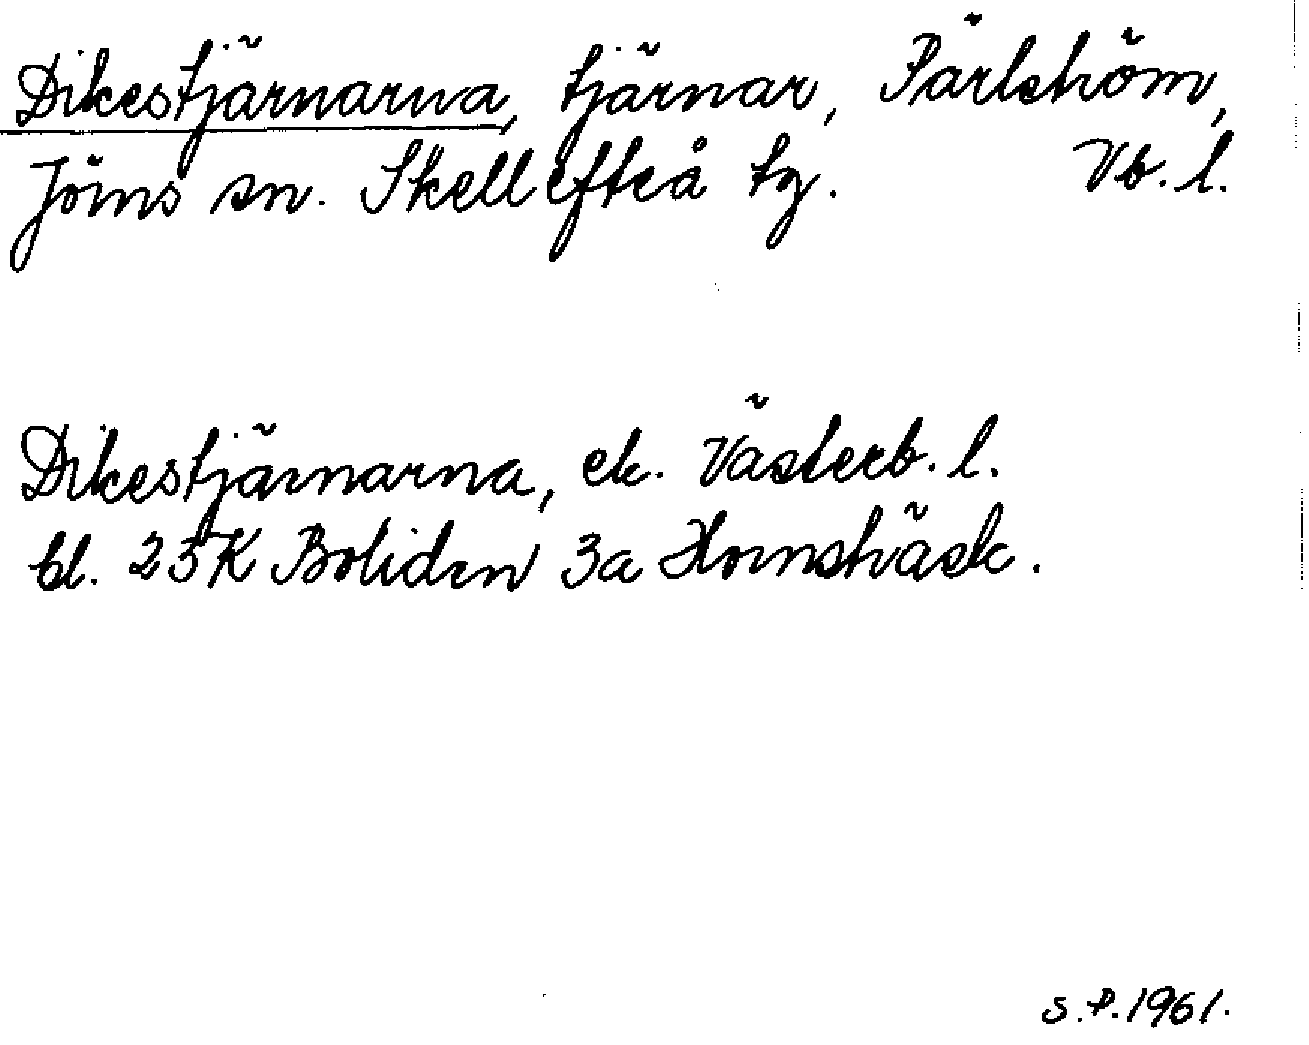 Dikestjärnarna, tjärnar, Pärlström,
Jörns sn. Skellefteå tg. Vb. l.
Dikestjärnarna, ek. Västerb. l.
bl. 23K Boliden 3a Hornsträsk.
S.P. 1961.